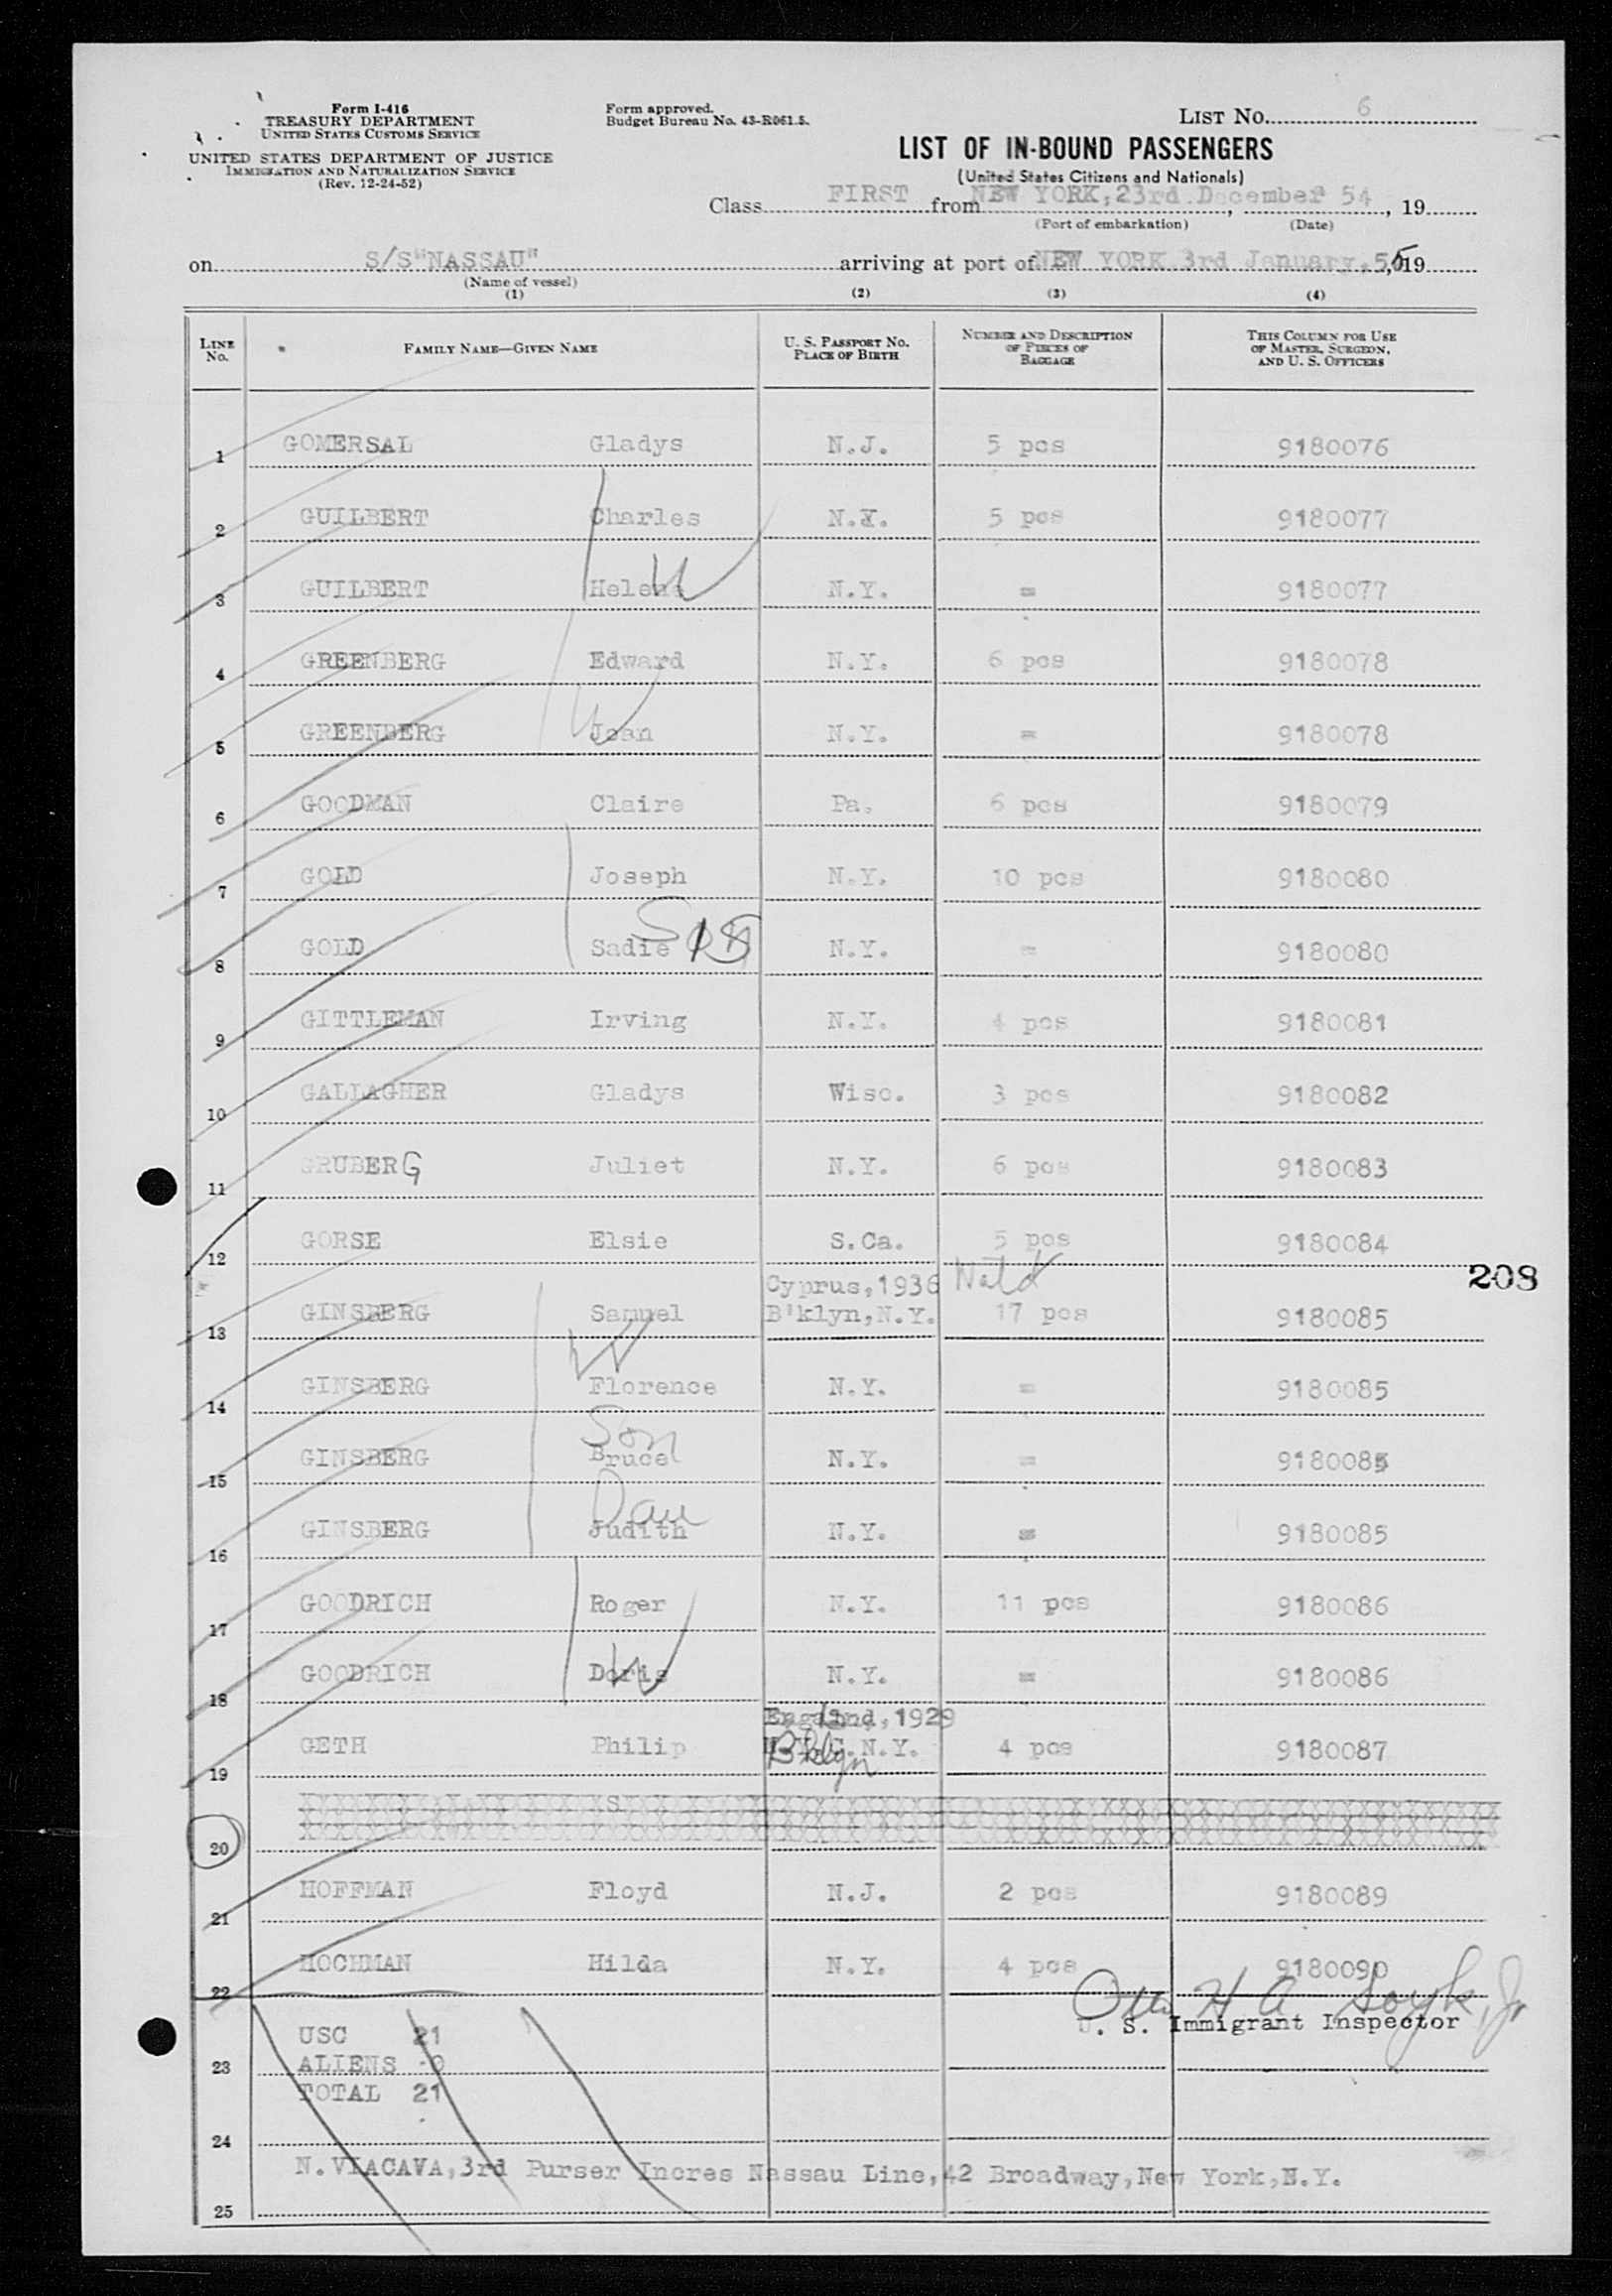 Form I-416
TREASURY DEPARTMENT
UNITED STATES CUSTOMS SERVICE
UNITED STATES DEPARTMENT OF JUSTICE
IMMIGRATION AND NATURALIZATION SERVICE
(Rev. 12-24-52)
Form approved.
Budget Bureau No. 43-R061.5.
LIST No. 6
LIST OF IN-BOUND PASSENGERS
(United States Citizens and Nationals)
Class FIRST from NEW YORK, 23rd December 54, 19
(Port of embarkation) (Date)
on S/S"NASSAU" arriving at port of NEW YORK 3rd January, 55, 19
(Name of vessel)
(1) (2) (3) (4)
LINE No. FAMILY NAME—GIVEN NAME U. S. PASSPORT NO. PLACE OF BIRTH NUMBER AND DESCRIPTION OF PIECES OF BAGGAGE THIS COLUMN FOR USE OF MASTER, SURGEON, AND U. S. OFFICERS
1 GOMERSAL Gladys N.J. 5 pcs 9180076
2 GUILBERT Charles N.Y. 5 pcs 9180077
3 GUILBERT Helene N.Y. = 9180077
W
4 GREENBERG Edward N.Y. 6 pcs 9180078
5 GREENBERG Joan N.Y. = 9180078
W
6 GOODMAN Claire Pa. 6 pcs 9180079
7 GOLD Joseph N.Y. 10 pcs 9180080
8 GOLD Sadie N.Y. = 9180080
9 GITTLEMAN Irving N.Y. 4 pcs 9180081
10 GALLAGHER Gladys Wisc. 3 pcs 9180082
11 GRUBERG Juliet N.Y. 6 pcs 9180083
12 GORSE Elsie S.Ca. 5 pcs 9180084
208
Cyprus, 1936 Natd
13 GINSBERG Samuel B'klyn, N.Y. 17 pcs 9180085
W
14 GINSBERG Florence N.Y. = 9180085
Son
15 GINSBERG Bruce N.Y. = 9180085
Dau
16 GINSBERG Judith N.Y. = 9180085
17 GOODRICH Roger N.Y. 11 pcs 9180086
18 GOODRICH Doris N.Y. = 9180086
W
England, 1929
19 GETH Philip Bklyn N.Y. 4 pcs 9180087
20
21 HOFFMAN Floyd N.J. 2 pcs 9180089
22 HOCHMAN Hilda N.Y. 4 pcs 9180090
Otto H A Soyk, Jr
U. S. Immigrant Inspector
USC 21
23 ALIENS -0
TOTAL 21
24
N. VIACAVA, 3rd Purser Incres Nassau Line, 42 Broadway, New York, N.Y.
25